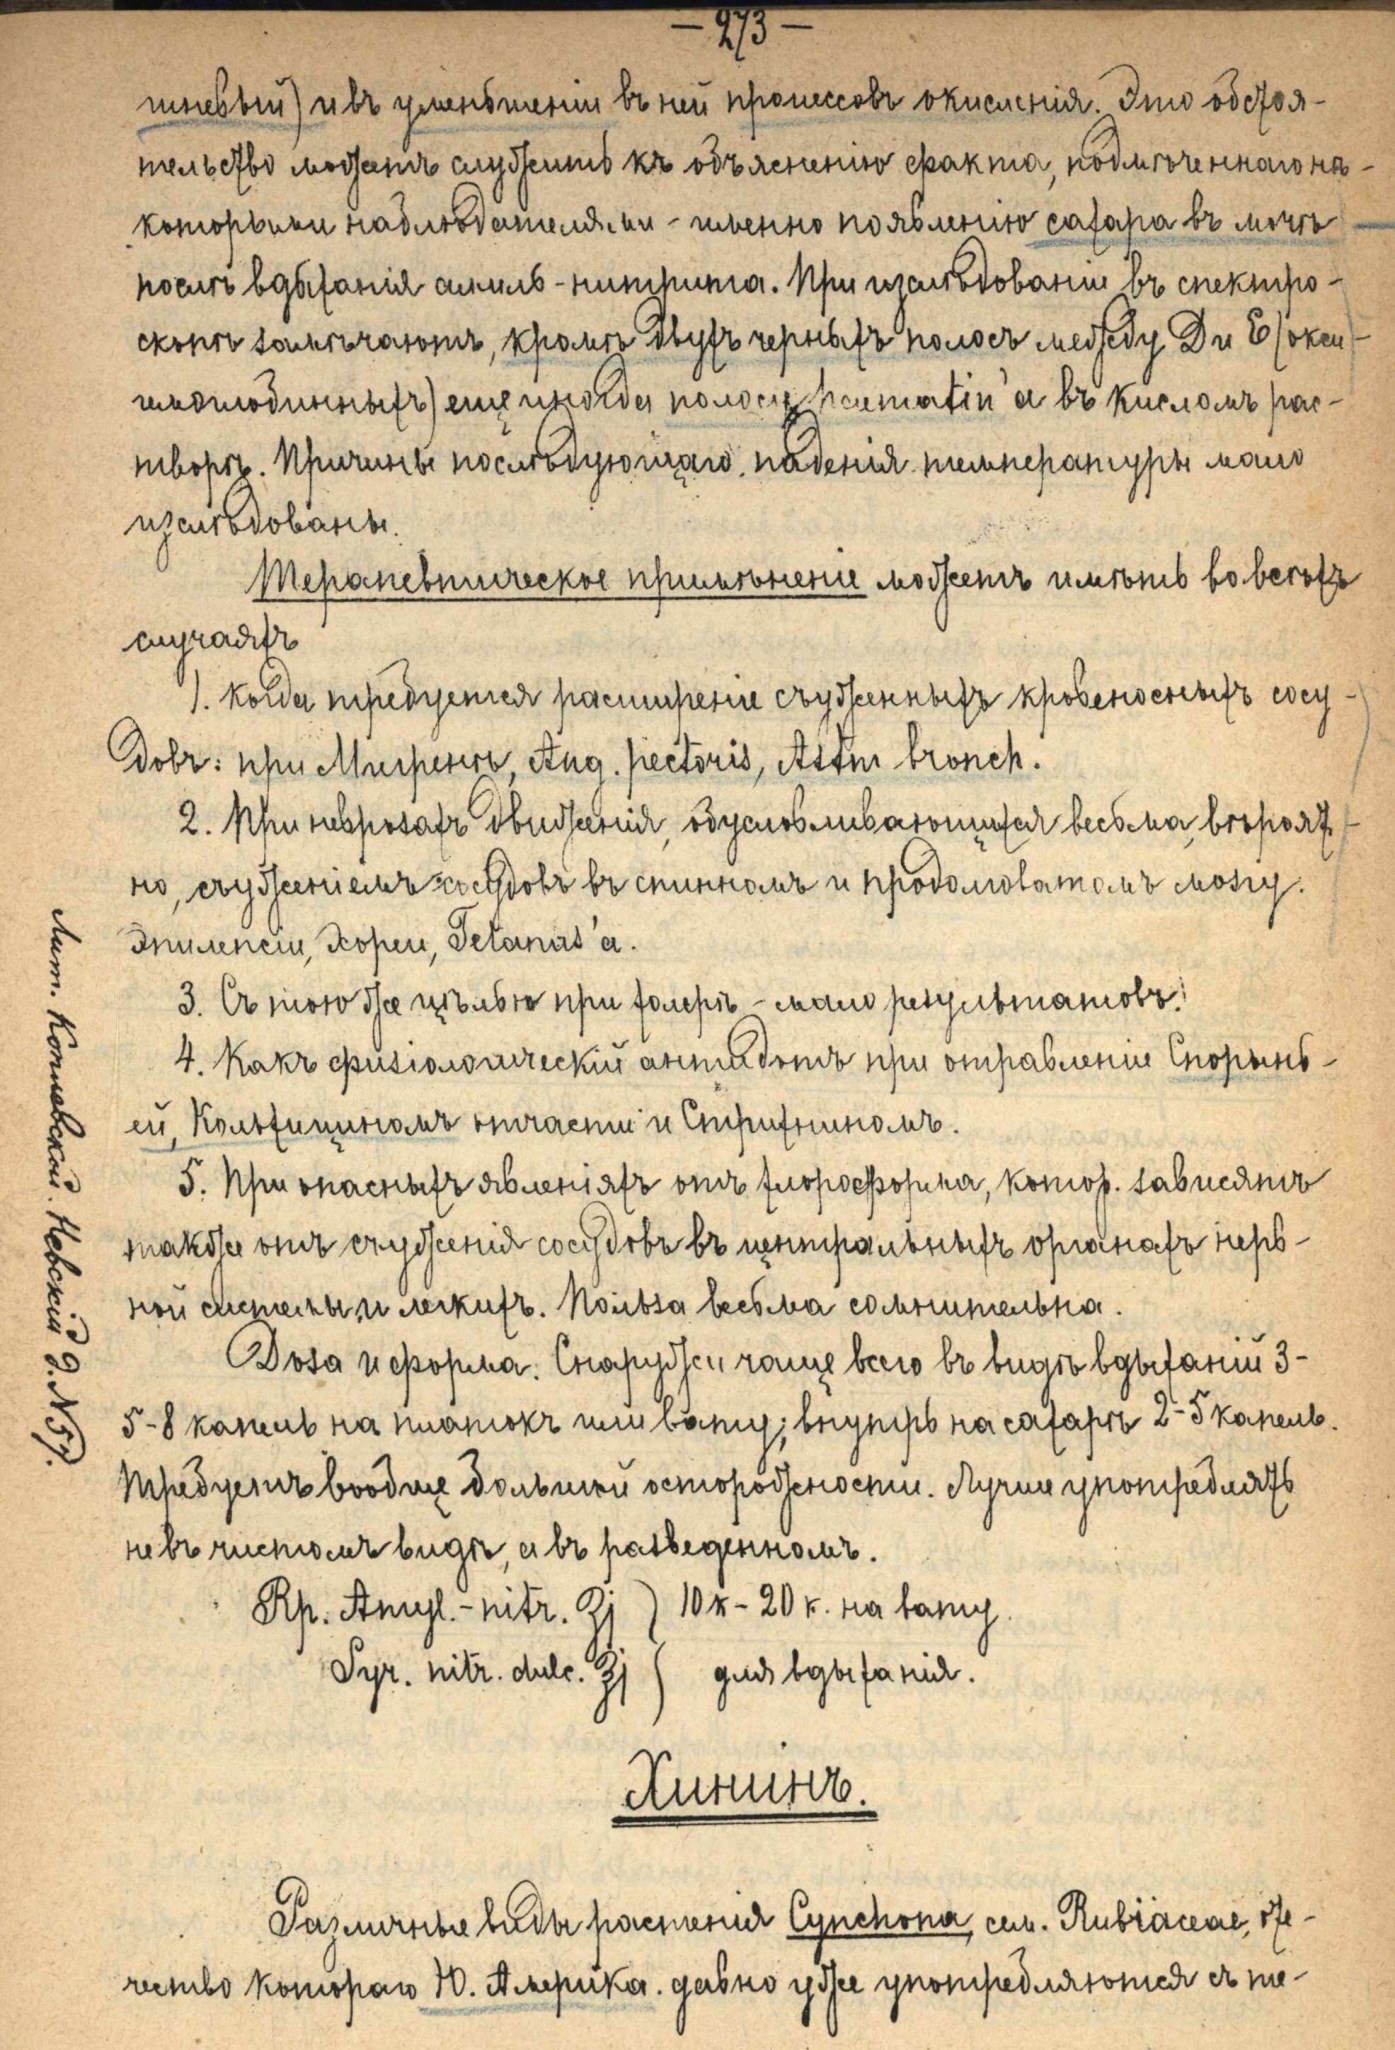 — 273 —
шневый) и въ уменьшеніи въ ней процессовъ окисленія. Это обстоя-
тельство можетъ служить къ объясненію факта, подмѣченнаго нѣ-
которыми наблюдателями - именно появленію сахара въ мочѣ
послѣ вдыханія амиль-нитрита. При изслѣдованіи въ спектро-
скопѣ замѣчаютъ, кромѣ двухъ черныхъ полосъ между D и E (окси-
гемоглобинныхъ) еще иногда полосу haematin'а въ кисломъ рас-
творѣ. Причины послѣдующаго паденія температуры мало
изслѣдованы.
Терапевтическое примѣненіе можетъ имѣть во всѣхъ
случаяхъ
1. когда требуется расширеніе съуженныхъ кровеносныхъ сосу-
довъ: при Мигренѣ, Ang. pectoris, Astm bronch.
2. При неврозахъ движенія, обусловливающихся весьма, вѣроят-
но, съуженіемъ сосудовъ въ спинномъ и продолговатомъ мозгу.
Эпилепсіи, Хореи, Tetanus'а.
3. Съ тою же цѣлью при холерѣ - мало результатовъ.
4. Какъ физіологическій антидотъ при отравленіе Спорынь-
ей, Кольхициномъ отчасти и Стрихниномъ.
5. При опасныхъ явленіяхъ отъ хлороформа, котор. зависятъ
также отъ съуженія сосудовъ въ центральныхъ органахъ нерв-
ной системы и легкихъ. Польза весьма сомнительна.
Доза и форма. Снаружи чаще всего въ видѣ вдыханій 3-
5-8 капель на платокъ или вату; внутрь на сахарѣ 2-5 капель.
Требуетъ вообще большой осторожности. Лучше употреблять
не въ чистомъ видѣ, а въ разведенномъ.
Rp. Amyl.-nitr. ʒj ) 10 к - 20 к. на вату
Syr. nitr. dulc. ʒj ( для вдыханія.
Хининъ.
Различные виды растенія Cynchona, сем. Rubiaceae, оте-
чество котораго Ю. Америка. давно уже употребляются съ те-
Лит. Коплевской. Невскій д. N 57.